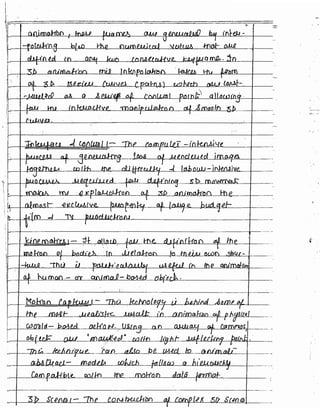 animation, these frames are generated by inter-
-polating b/w the numerical values that are
defined in any two consecutive keyframes. In
3D animation this Interpolation takes the form
of 3D Bezier Curves (paths) which are cont-
as a series of control point allowing
for the interactive manipulation of smooth 3D
curves.
Interface & Control:- The computer-intensive
process of generating 100s of rendered images
together with the difficulty & labour-intensive
processes required for defining 3D movement
makes the exploration of 3D animation the
almost exclusive property of large budget
film & TV productions.
Kinematics:- It allows for the definition of the
motion of bodies in relation to their own struc-
-ture. This is particularly useful in the animation
of human- or animal-based objects.
Motion Capture:- This technology is behind some of
the most realistic results in animation of physical
world-based actions. Using an array of cameras,
objects are "marked" with light reflecting points.
This technique can also be used to animate
abstract models which follow a hierarchy
compatible with the motion data format.
3D Scene:- The construction of complex 3D scene